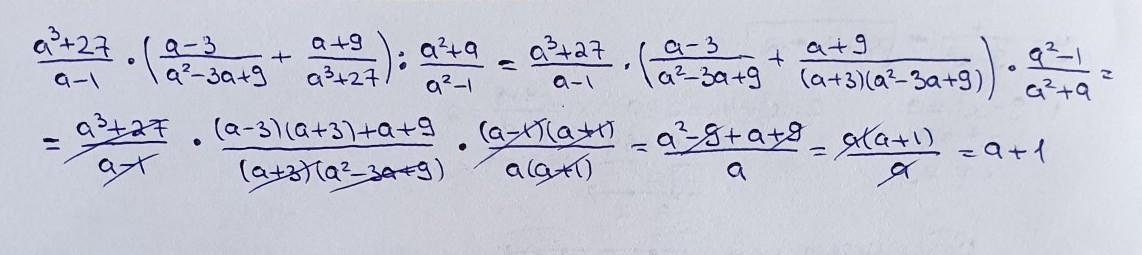 \frac{a^3+27}{a-1} \cdot \left( \frac{a-3}{a^2-3a+9} + \frac{a+9}{a^3+27} \right) : \frac{a^2+a}{a^2-1} = \frac{a^3+27}{a-1} \cdot \left( \frac{a-3}{a^2-3a+9} + \frac{a+9}{(a+3)(a^2-3a+9)} \right) \cdot \frac{a^2-1}{a^2+a} =
= \frac{a^3+27}{a-1} \cdot \frac{(a-3)(a+3)+a+9}{(a+3)(a^2-3a+9)} \cdot \frac{(a-1)(a+1)}{a(a+1)} = \frac{a^2-9+a+9}{a} = \frac{a(a+1)}{a} = a+1